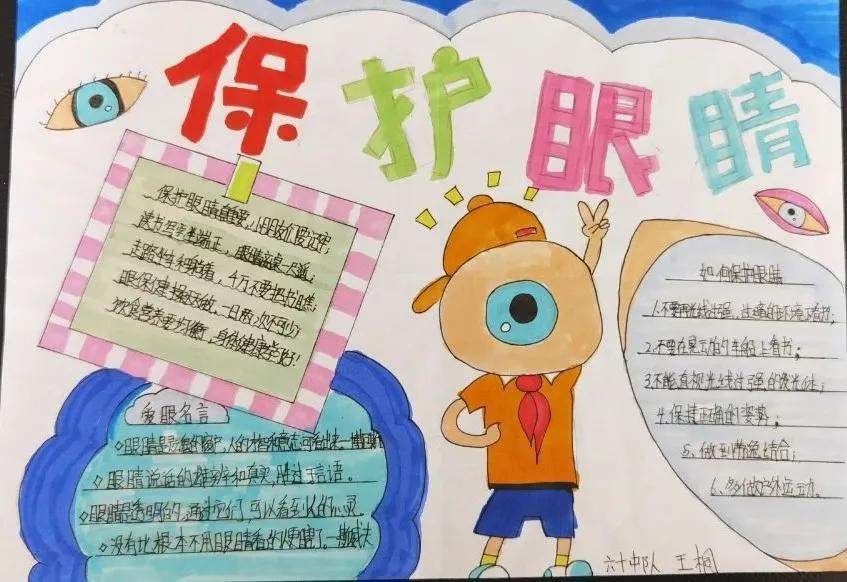 保护眼睛
保护眼睛最重要,小朋友们要记牢,
读书写字坐端正,眼睛离桌一尺远。
走路坐车躺着,千万不要把书瞧,
眼保健操认真做,一日两次不可少,
饮食营养要均衡,身体健康至好!
爱眼名言
◇眼睛是灵魂的窗户,人的才智和意志可看出来一
◇眼睛说话的雄辩和真实,胜过言语。
◇眼睛是透明的,通过它们,可以看到人的心灵。
◇没有比根本不用眼睛看的人更瞎了。一
如何保护眼睛
1.不要再光线过强、过暗的环境下看书;
2.不要在晃动的车船上看书;
3.不能直视光线过强的发光体;
4.保持正确的姿势;
5.做到劳逸结合;
6.多做户外运动。
六十中队 王桐